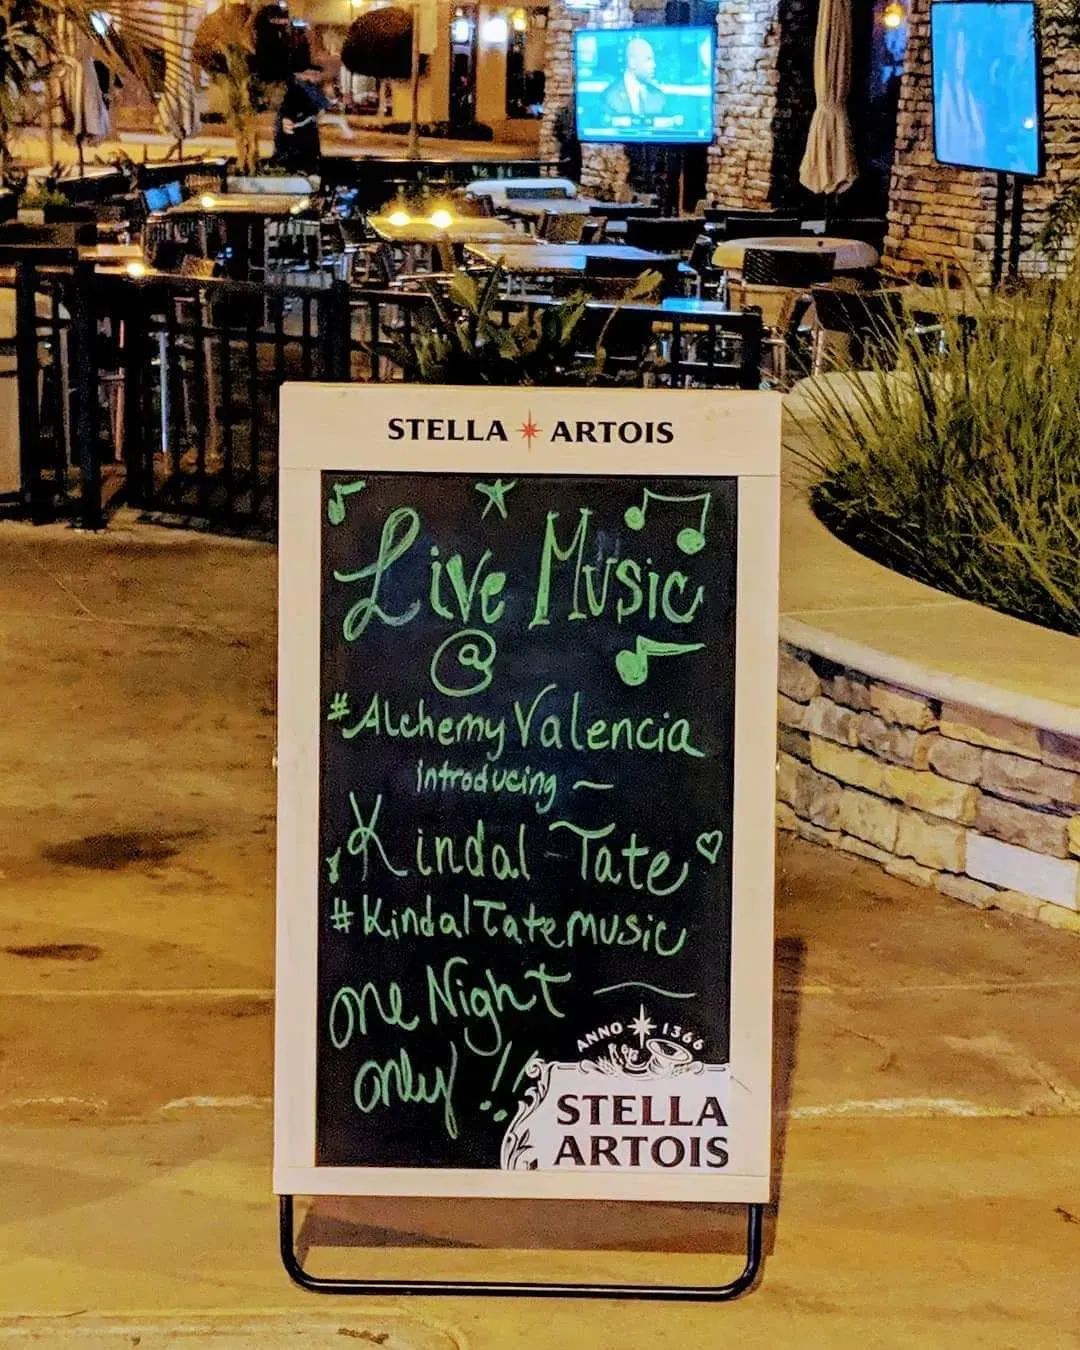 STELLA ARTOIS
Live Music
@
#AlchemyValencia
introducing ~
Kindal Tate
#KindalTateMusic
One Night
Only!!
ANNO 1366
STELLA
ARTOIS